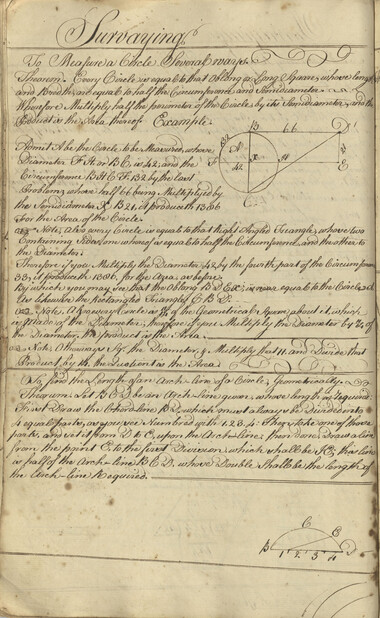 Surveying
To Measure a Circle Several ways.
Theorem. Every Circle is equal to that Oblong or Long Square, whose length
and Breadth, are equal to half the Circumference and Semidiameter
Wherefore Multiply half the perimeter of the Circle by its Semidiameter, and the
Product is the Area thereof Example
Admit A be the Circle, to be Measured, whose
Diameter F H or B C is 42, and the
Circumference B H C F 132 by the last
Problem, whose half 66 being Multiplied by
the Semidiameter X B 21, it produceth 1386
For the Area of the Circle.
Note, also every Circle is equal to that Right Angled Triangle, whose two
Containing Sides one whereof is equal to half the Circumference, and the other to
the Diameter;
Therefore if you Multiply the Diameter 42 by the fourth part of the Circumference
33, it produceth 1386, for the Area, as before
By which you may see that the Oblong B D E X, is equal to the Circle A
As likewise the Rectangled Triangle C B D.
Note, Always a Circle is 11/14 of the Geometrical Square about it, which
is Made of the Diameter, therefore if you Multiply the Diameter by 11/14 of
the Diameter, the product is the Area.
Note, Always Sqr. the Diameter, & Multiply that 11. and Divide that
Product by 14. the Quotient is the Area.
To find the Length of an Arch-line of a Circle, Geometrically.
Theorem. Let B C D be an Arch line given, whose length is required.
First Draw the Chord line B D, which must always be Divided into
4 equal parts, as you see Numbred with 1 2 3 4. Then take one of those
parts, and set it from D to E, upon the Arch-line; then done, draw a line
from the point E, to the first Division, which shall be 1 E, this line
is half of the Arch-line B C D. whose Double Shall be the length of
the Arch-line Required.
B 66 D
A
F X H E
42
C
C E
B 1 2 3 4 D